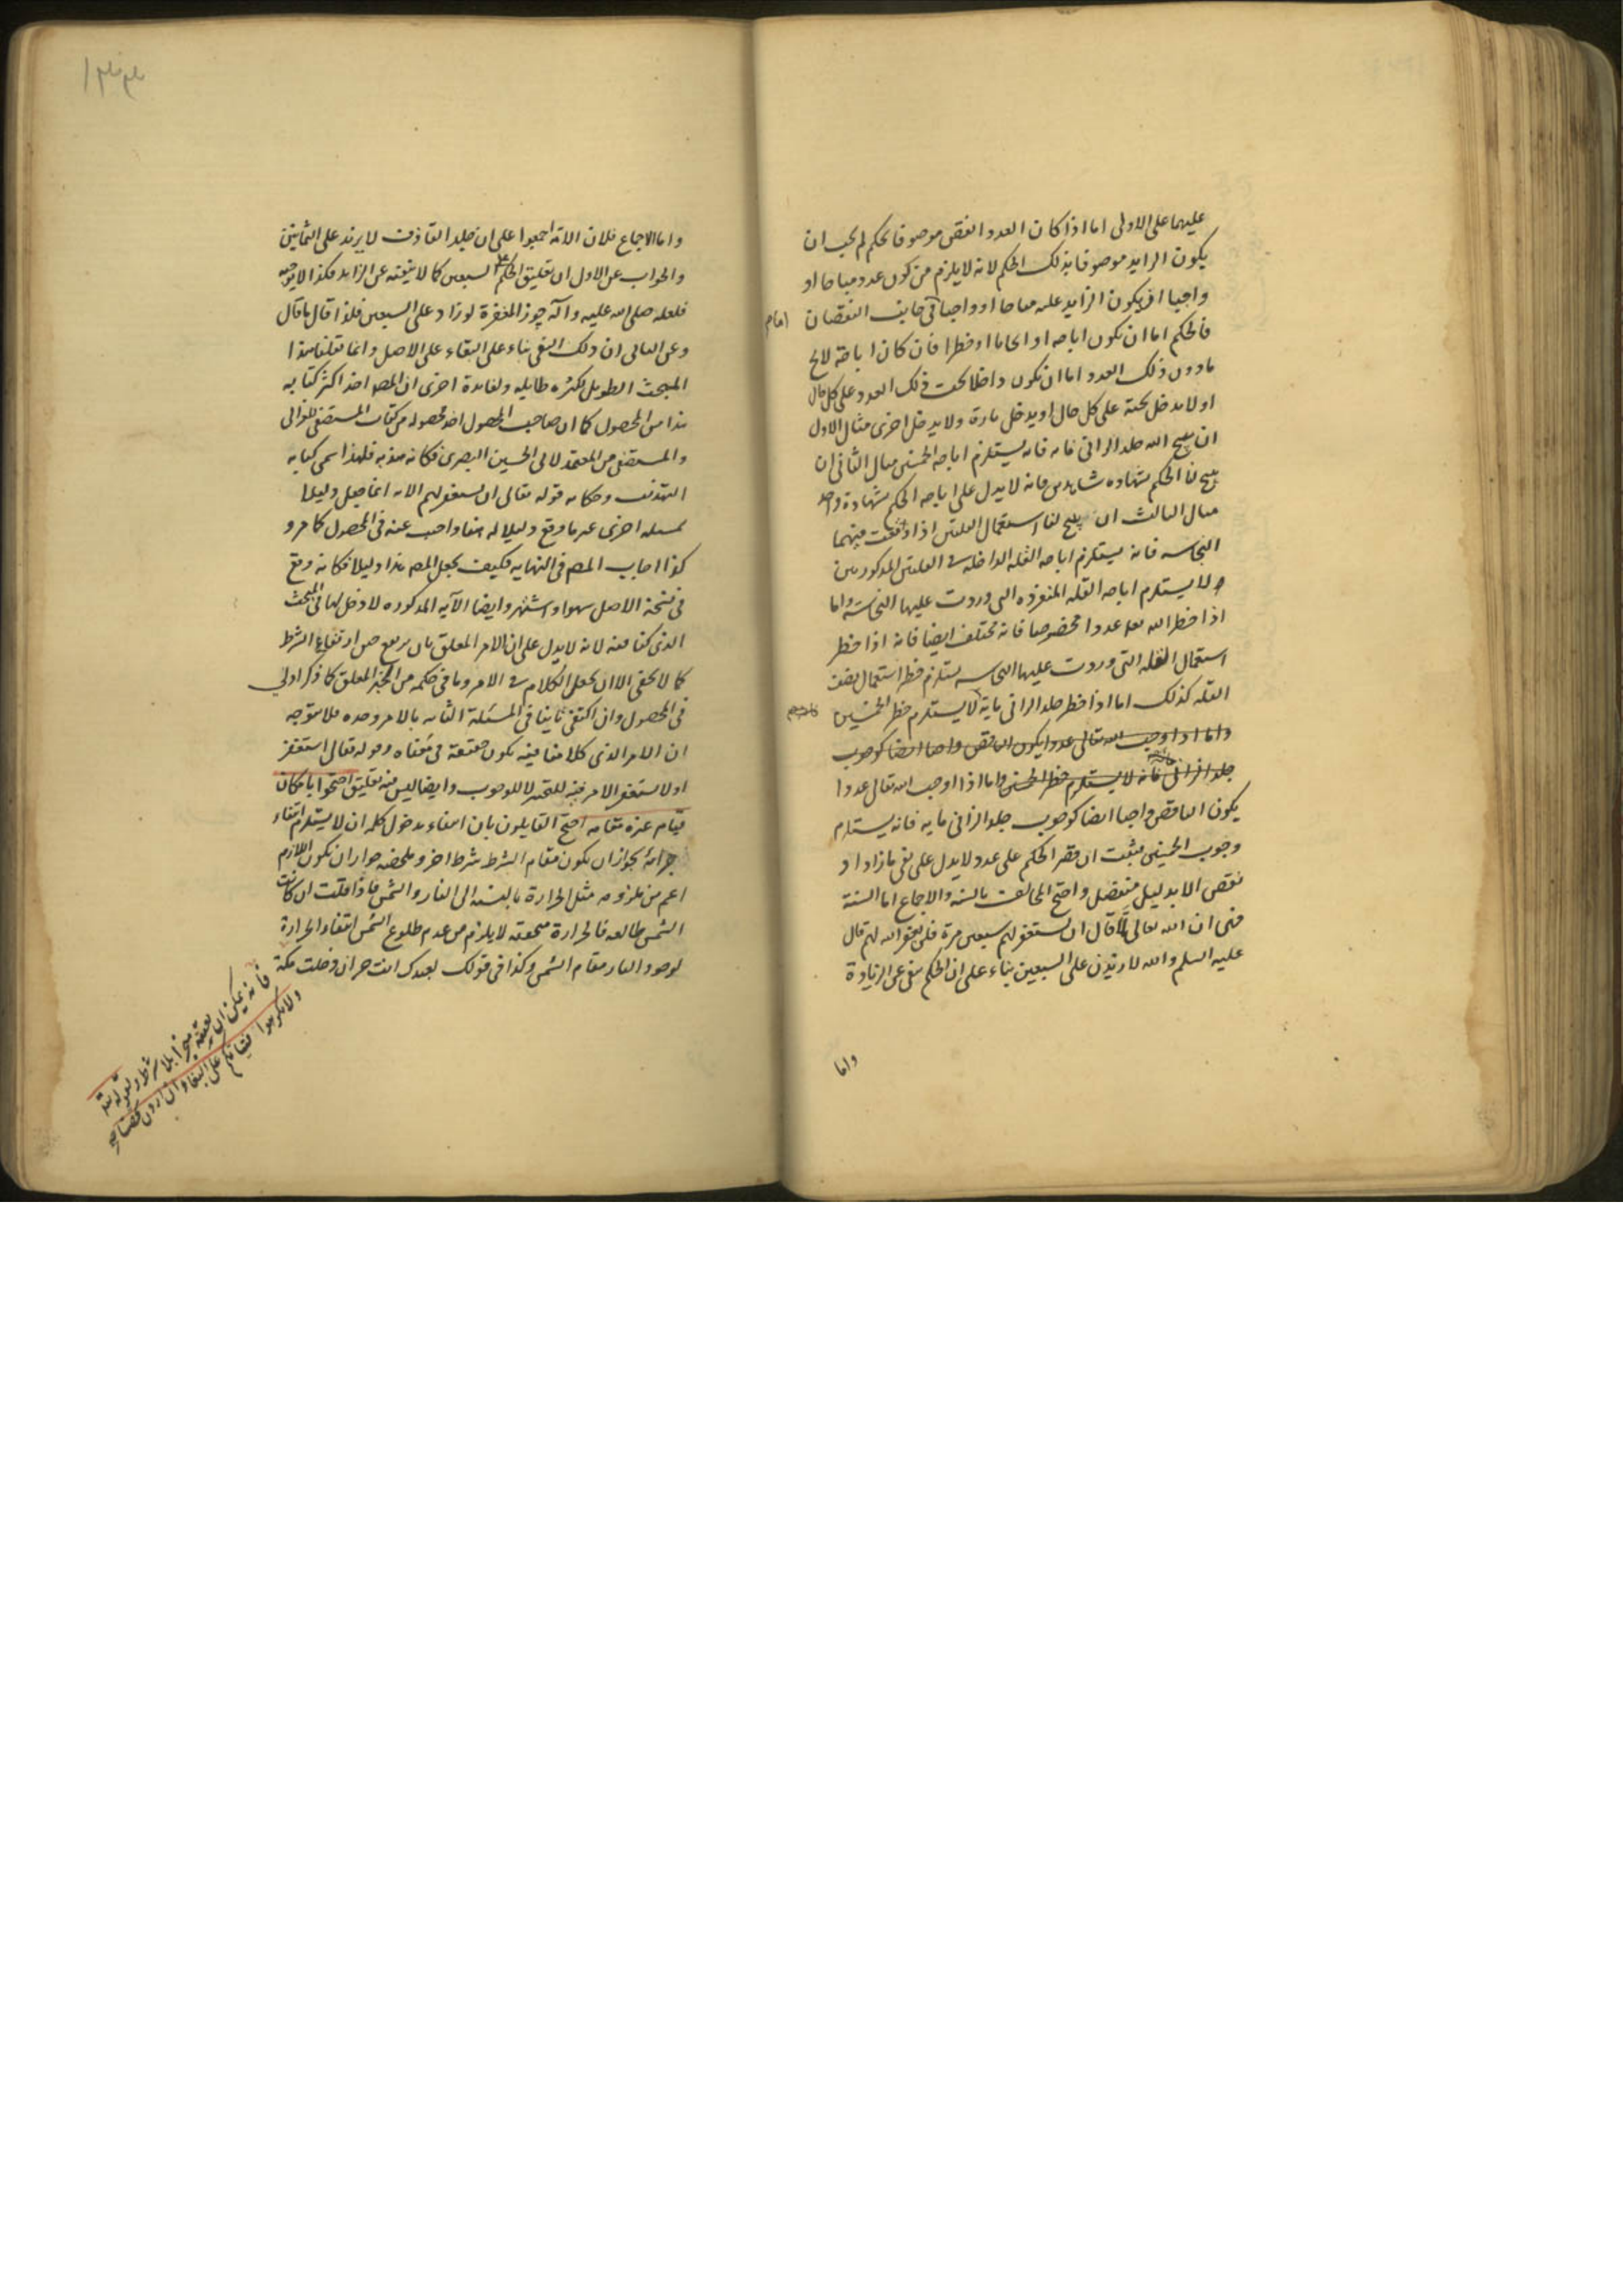 عليهما على الاولى اما اذا كان العدد الناقص موصوفا بحكم لم يجب ان
يكون الزايد موصوفا بذلك الحكم لانه لا يلزم من كون عدد مباحا او
واجبا ان يكون الزايد عليه مباحا او واجبا و فى جانب النقصان
فالحكم اما ان يكون اباحه او ايجابا او حظرا فان كان اباحة
ما دون ذلك العدد اما ان يكون داخلا تحت ذلك العدد على كل حال
او لا يدخل تحته على كل حال او يدخل تارة ولا يدخل اخرى مثال الاول
ان يبيح الله جلد الزانى مايه فانه يستلزم اباحه الخمسين مثال الثانى ان
يبيح لنا الحكم بشهاده شاهدين فانه لا يدل على اباحه الحكم بشهادة واحد
مثال الثالث ان يبيح لنا استعمال القلتين اذا وقعت فيهما
النجاسه فانه يستلزم اباحه القله الداخله فى القلتين المذكورتين
ولا يستلزم اباحه القله المنفرده التى وردت عليها النجاسة واما
اذا حظر الله عددا مخصوصا فانه مختلف ايضا فانه اذا حظر
استعمال القله التى وردت عليها النجاسه يستلزم حظر استعمال نصف
القله كذلك اما اذا حظر جلد الزانى ماية لا يستلزم حظر الخمسين
واما اذا اوجب الله تعالى عددا يكون الناقص واجبا ايضا كوجوب
جلد الزانى فانه لا يستلزم حظر الخمسين واما اذا اوجب الله تعالى عددا
يكون الناقص واجبا ايضا كوجوب جلد الزانى مايه فانه يستلزم
وجوب الخمسين فثبت ان قصر الحكم على عدد لا يدل على نفى ما زاد او
نقص الا بدليل منفصل واحتج المخالف بالسنه والاجماع اما السنة
فهى ان الله تعالى لما قال ان تستغفر لهم سبعين مرة فلن يغفر الله لهم قال
عليه السلم والله لازيدن على السبعين بناء على ان الحكم منفى عن الزيادة
واما
واما الاجماع فلان الامه اجمعوا على ان جلد القاذف لا يزيد على الثمانين
والجواب عن الاول ان تعليق الحكم على السبعين كما لا ينفيه عن الزايد فكذا لا يوجبه
فلعله صلى الله عليه وآله جوز المغفرة لو زاد على السبعين فلذا قال ما قال
وعن الثانى ان ذلك النفى بناء على البقاء على الاصل وانما نقلنا هذا
المبحث الطويل لكثره طايله ولفايدة اخرى ان المص اخذ اكثر كتابه
هذا من المحصول كما ان صاحب المحصول اخذ محصوله من كتاب المستصفى للغزالى
والمستصفى من المعتمد لابى الحسين البصرى فكانه هذبه فلهذا سمى كتابه
التهذيب وحكايه قوله تعالى ان تستغفر لهم الايه انما جعل دليلا
لمسئله اخرى غير ما وقع دليلا له هنا واجيب عنه فى المحصول كما مر و
كذا اجاب المص فى النهايه فكيف يجعل المص هذا دليلا فكانه وقع
فى نسخة الاصل سهوا واشتهر وايضا الآيه المذكوره لا دخل لها فى المبحث
الذى كنا فيه لانه لا يدل على ان الامر المعلق بان يرتفع حين ارتفاع الشرط
كما لا يخفى الا ان يجعل الكلام فى الامر وما فى حكمه من الخبر المعلق كما ذكر اولا
فى المحصول وان اكتفى ثانيا فى المسئلة الثانيه بالامر وحده فلا يتوجه
ان الامر الذى كلامنا فيه يكون حقيقة فى معناه وقوله تعالى استغفر
او لا تستغفر الامر فيه للتخيير لا للوجوب وايضا ليس فيه تعليق احتجوا بامكان
قيام غيره مقامه احتج القايلون بان انتفاء مدخول كلمه ان لا يستلزم انتفاء
جزائه بجواز ان يكون مقام الشرط شرط اخر وملخصه جواز ان يكون اللازم
اعم من ملزومه مثل الحرارة بالنسبه الى النار والشمس فاذا قلت ان كانت
الشمس طالعه فالحرارة متحققه لا يلزم من عدم طلوع الشمس انتفاء الحرارة
لوجود النار مقام الشمس وكذا فى قولك لعبدك انت حر ان دخلت مكة
فانه يمكن ان يعتقه منجزا بلا شرط وبقوله تعه
ولا تكرهوا فتياتكم على البغاء ان اردن تحصنا